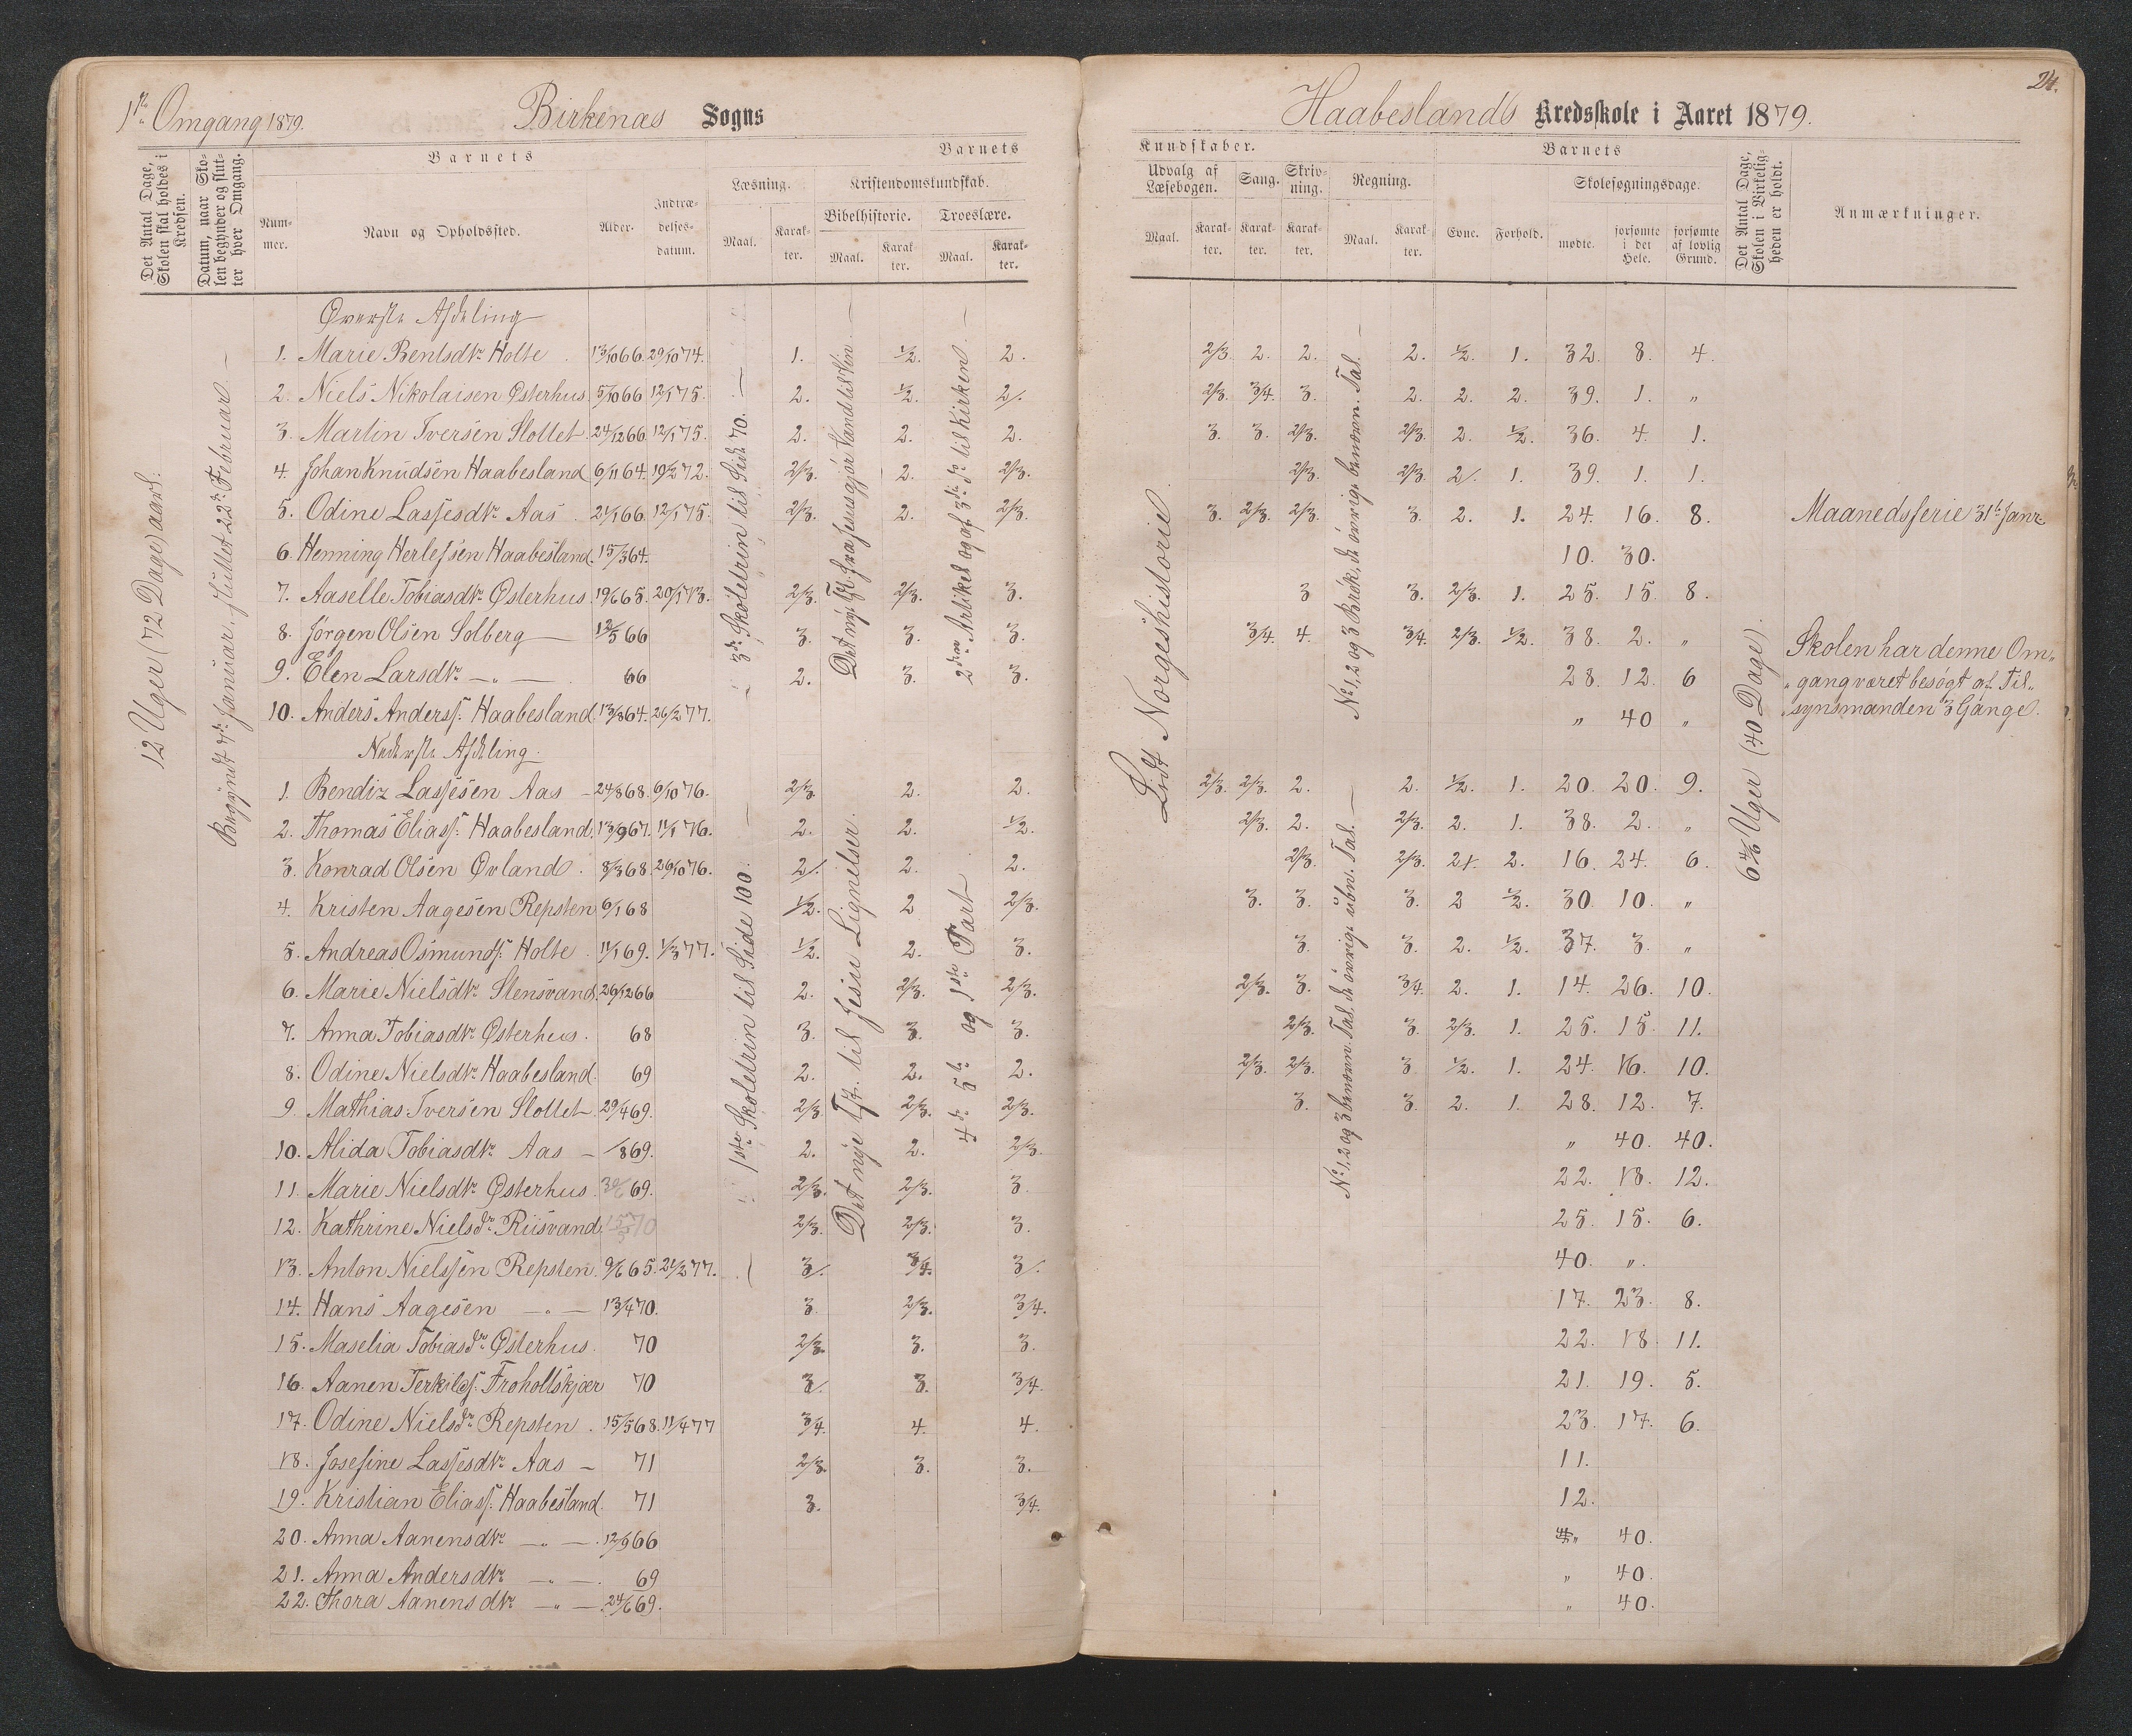 1ste Omgang 1879.
Birkenæs Sogns
Det Antal Dage, Skolen skal holdes i Kredsen.
Datum, naar Skolen begynder og slutter hver Omgang.
Barnets
Barnets
Nummer.
Navn og Opholdssted.
Alder.
Indtrædelsesdatum.
Læsning.
Kristendomskundskab.
Bibelhistorie.
Troeslære.
Maal.
Karakter.
Maal.
Karakter.
Maal.
Karakter.
12 Uger (72 Dage) aarl.
Begyndt 7de Januar, sluttet 22de Februar. —
3die Skoletrin til Side 70. —
Det nye T. fra Jesus gjør Vand til Vin —
2den Artikel og af 3die do til Kirken. —
1ste Skoletrin til Side 100. —
Det nye Tst. til Jesu Lignelser.
4de 5te og 1ste Part
Øverste Afdeling
1. Marie Bentsdtr Holte. 13/10 66. 29/10 74. 1. 1/2. 2.
2. Niels Nikolaisen Østerhus 5/10 66 12/1 75. 2. 1/2. 2/.
3. Martin Iversen Slottet 24/12 66 12/1 75. 2. 2. 2.
4. Johan Knudsen Haabesland 6/11 64. 19/2 72. 2/3. 2. 2/3.
5. Odine Lassesdtr Aas. 21/1 66. 12/1 75. 2/3. 2. 2/3.
6. Henning Herlefsen Haabesland. 15/3 64.
7. Aaselle Tobiasdtr Østerhus. 19/6 65. 20/1 73. 2/3. 2/3. 3.
8. Jørgen Olsen Solberg — 12/5 66 3. 3. 3.
9. Elen Larsdtr —„— 66 2. 3. 3.
10. Anders Anderss. Haabesland. 13/3 64. 26/2 77.
Nederste Afdeling.
1. Bendix Lassesen Aas — 24/8 68. 6/10 76. 2/3 2. 2.
2. Thomas Eliass. Haabesland. 13/9 67. 11/1 76. 2. 2. 1/2.
3. Konrad Olsen Øvland. 8/3 68. 29/10 76. 2/. 2. 2.
4. Kristen Aagesen Repsten 6/1 68 1/2. 2 2/3.
5. Andreas Osmunds. Holte. 11/1 69. 1/3 77. 1/2. 2. 3.
6. Marie Nielsdtr Stensvand. 26/12 66 2. 2/3. 2/3.
7. Anna Tobiasdtr Østerhus. 68 3. 3. 3.
8. Odine Nielsdtr Haabesland. 69 2. 2. 2.
9. Mathias Iversen Slottet. 29/4 69. 2/3. 2/3. 2/3.
10. Alida Tobiasdtr Aas — /8 69. 2. 2. 2/3.
11. Marie Nielsdtr Østerhus. 30/6 69. 2/3. 2/3. 3.
12. Kathrine Nielsdr Riisvand. 70 2/3. 2/3. 3.
13. Anton Nielssen Repsten. 9/6 65. 21/2 77. 3/. 3/4. 3/.
14. Hans Aagesen —„— 13/4 70. 3. 2/3. 3/4.
15. Maselia Tobiasdr Østerhus. 70 2/3. 3. 3.
16. Aanen Terkils. Froholtskjær 70 3/. 3. 3/4.
17. Odine Nielsdr Repsten. 15/5 68. 11/4 77 3/4. 4. 4.
18. Josefine Lassesdtr Aas — 71 2/3. 3. 3.
19. Kristian Eliass. Haabesland. 71 3. 3/4.
20. Anna Aanensdtr —„—. 12/9 66
21. Anna Andersdtr —„—. 69
22. Thora Aanensdtr —„—. 24/6 69.
24.
Haabeslands Kredsskole i Aaret 1879.
Kundskaber.
Barnets
Udvalg af Læsebogen.
Sang.
Skrivning.
Regning.
Skolesøgningsdage.
Maal.
Karakter.
Karakter.
Karakter.
Maal.
Karakter.
Evne.
Forhold.
mødte.
forsømte i det Hele.
forsømte af lovlig Grund.
Det Antal Dage, Skolen i Virkeligheden er holdt.
Anmærkninger.
Lidt Norgeshistorie
No 1, 2 og 3 Brøk, de øvrige benævn. Tal. —
No 1, 2 og 3 benævn. Tal. de øvrige ubn. Tal. —
6 4/6 Uger (40 Dage).
2/3. 2. 2. 2. 1/2. 1. 32. 8. 4.
2/3. 3/4. 3. 2. 2. 2. 39. 1. „
3. 3. 2/3. 2/3. 2. 1/2. 36. 4. 1.
2/3. 2/3. 2/. 1. 39. 1. 1.
3. 2/3. 2/3. 3. 2. 1. 24. 16. 8. Maanedsferie 31te Janr.
10. 30.
3 3. 2/3. 1. 25. 15. 8.
3/4. 4. 3/4. 2/3. 1/2. 38. 2. „ Skolen har denne Om„
28. 12. 6 „gang været besøgt af Til„
„ 40 „ „synsmanden 3 Gange.
2/3. 2/3. 2. 2. 1/2. 1. 20. 20. 9.
2/3. 2. 2/3. 2. 1. 38. 2. „
2/3. 2/3. 2/. 2. 16. 24. 6.
3. 3. 3. 2 1/2. 30. 10. „
3. 3. 2. 1/2. 37. 3. „
2/3. 3. 3/4. 2. 1. 14. 26. 10.
2/3. 3. 2/3. 1. 25. 15. 11.
2/3. 2/3. 3 1/2. 1. 24. 16. 10.
3. 3. 2. 1. 28. 12. 7.
„ 40. 40.
22. 18. 12.
25. 15. 6.
40. „.
17. 23. 8.
22. 18 11.
21. 19. 5.
23. 17. 6.
11.
12.
„ 40.
„ 40.
„ 40.